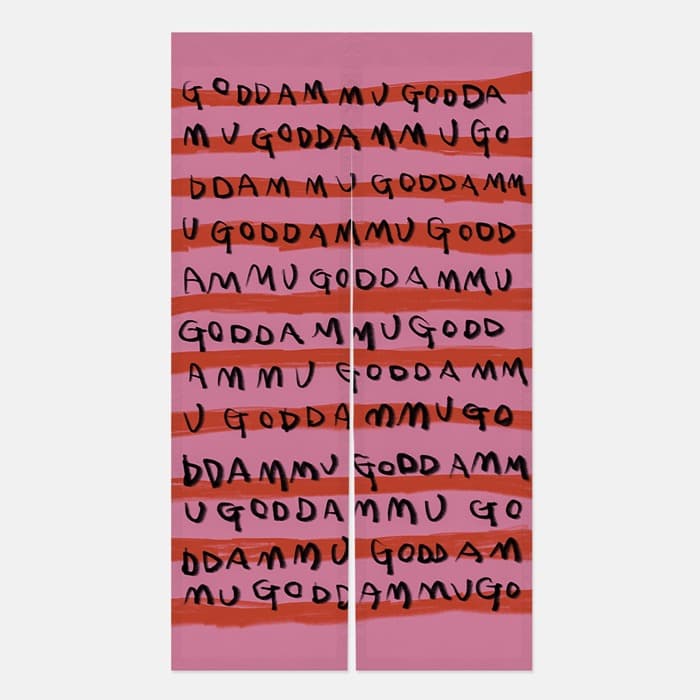 GODDAMMU GODDA
MU GODDAMMUGO
DDAMMU GODDAMM
U GODDAMMU GODD
AMMU GODDAMMU
GODDAMMUGODD
AMMU GODDAMM
U GODDAMMUGO
DDAMMU GODDAMM
U GODDAMMU GO
DDAMMU GODDAM
MU GODDAMMUGO